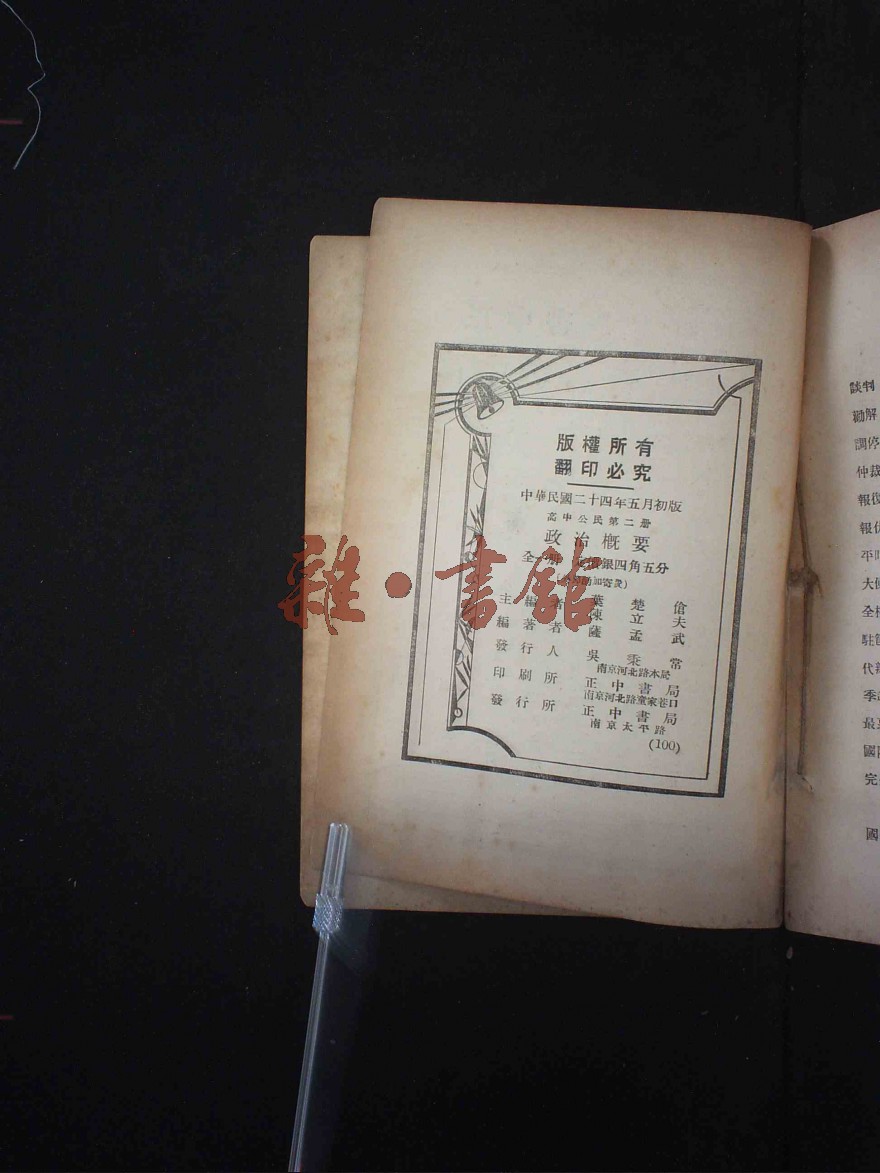 版權所有
翻印必究
中華民國二十四年五月初版
高中公民第二册
政治概要
全一册 定價銀四角五分
加寄費)
主編者 葉楚傖
陳立夫
編著者 薩孟武
發行人 吳秉常
南京河北路本局
印刷所 正中書局
南京河北路童家巷口
發行所 正中書局
南京太平路
(100)
雜·書館
談判
勸解
調停
仲裁
報復
平時
全權
國際
國